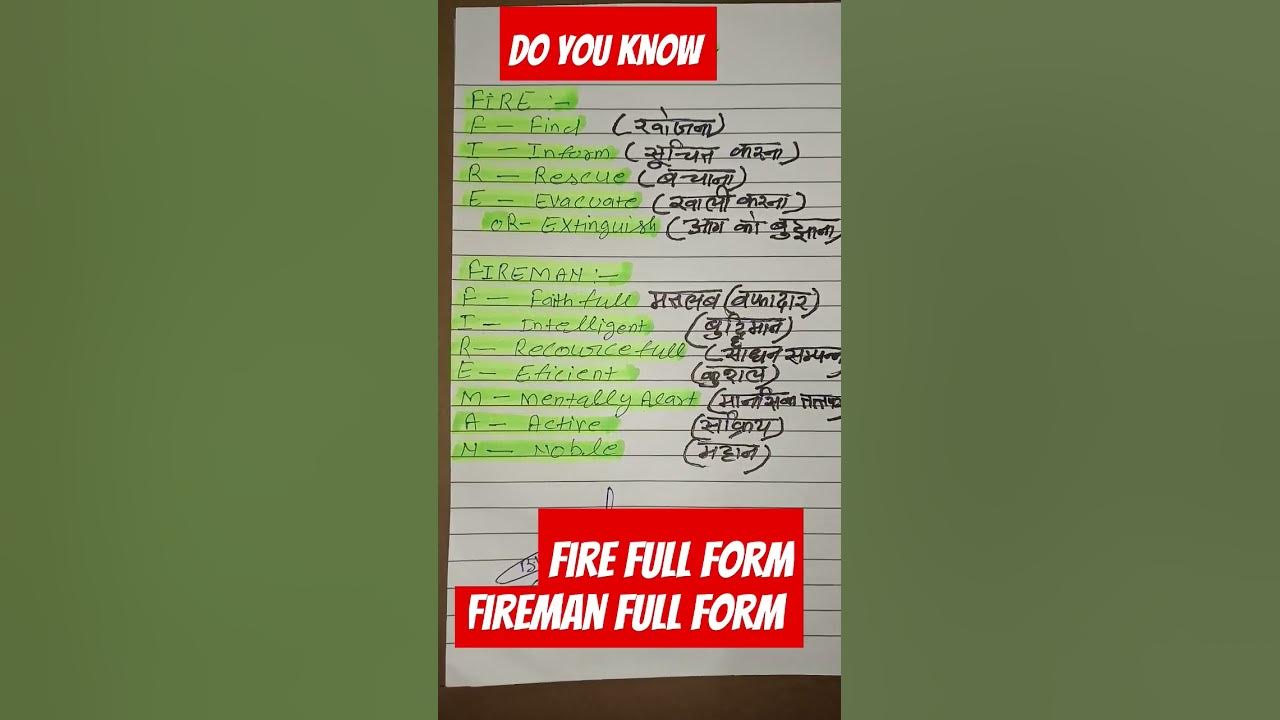 DO YOU KNOW
FIRE :-
F - Find (खोजना)
I - Inform (सूचित करना)
R - Rescue (बचाना)
E - Evacuate (खाली करना)
OR- Extinguish (आग को बुझाना
FIREMAN :-
F - Faithfull मतलब (वफादार)
I - Intelligent (बुद्धिमान)
R - Recourcefull (साधन सम्पन्न
E - Eficient (कुशल)
M - Mentally Alart (मानसिक
A - Active (सक्रिय)
N - Nobile (महान)
FIRE FULL FORM
FIREMAN FULL FORM